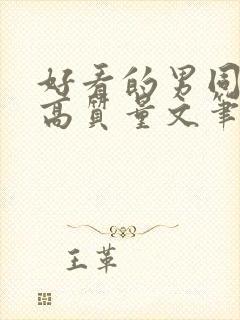 好看的男同
高质量文笔
王革